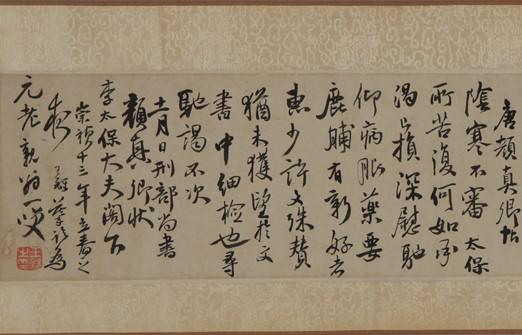 唐顏真卿帖
陰寒不審太保
所苦復何如承
渴已損深慰馳
仰病服藥要
鹿脯有新好者
惠少許文殊贊
猶未獲望於文
書中細檢也尋
馳謁不次
十一月日刑部尚書
顏真卿狀
李太保大夫閣下
崇禎十三年立春之
夜王鐸為
元老親翁一笑